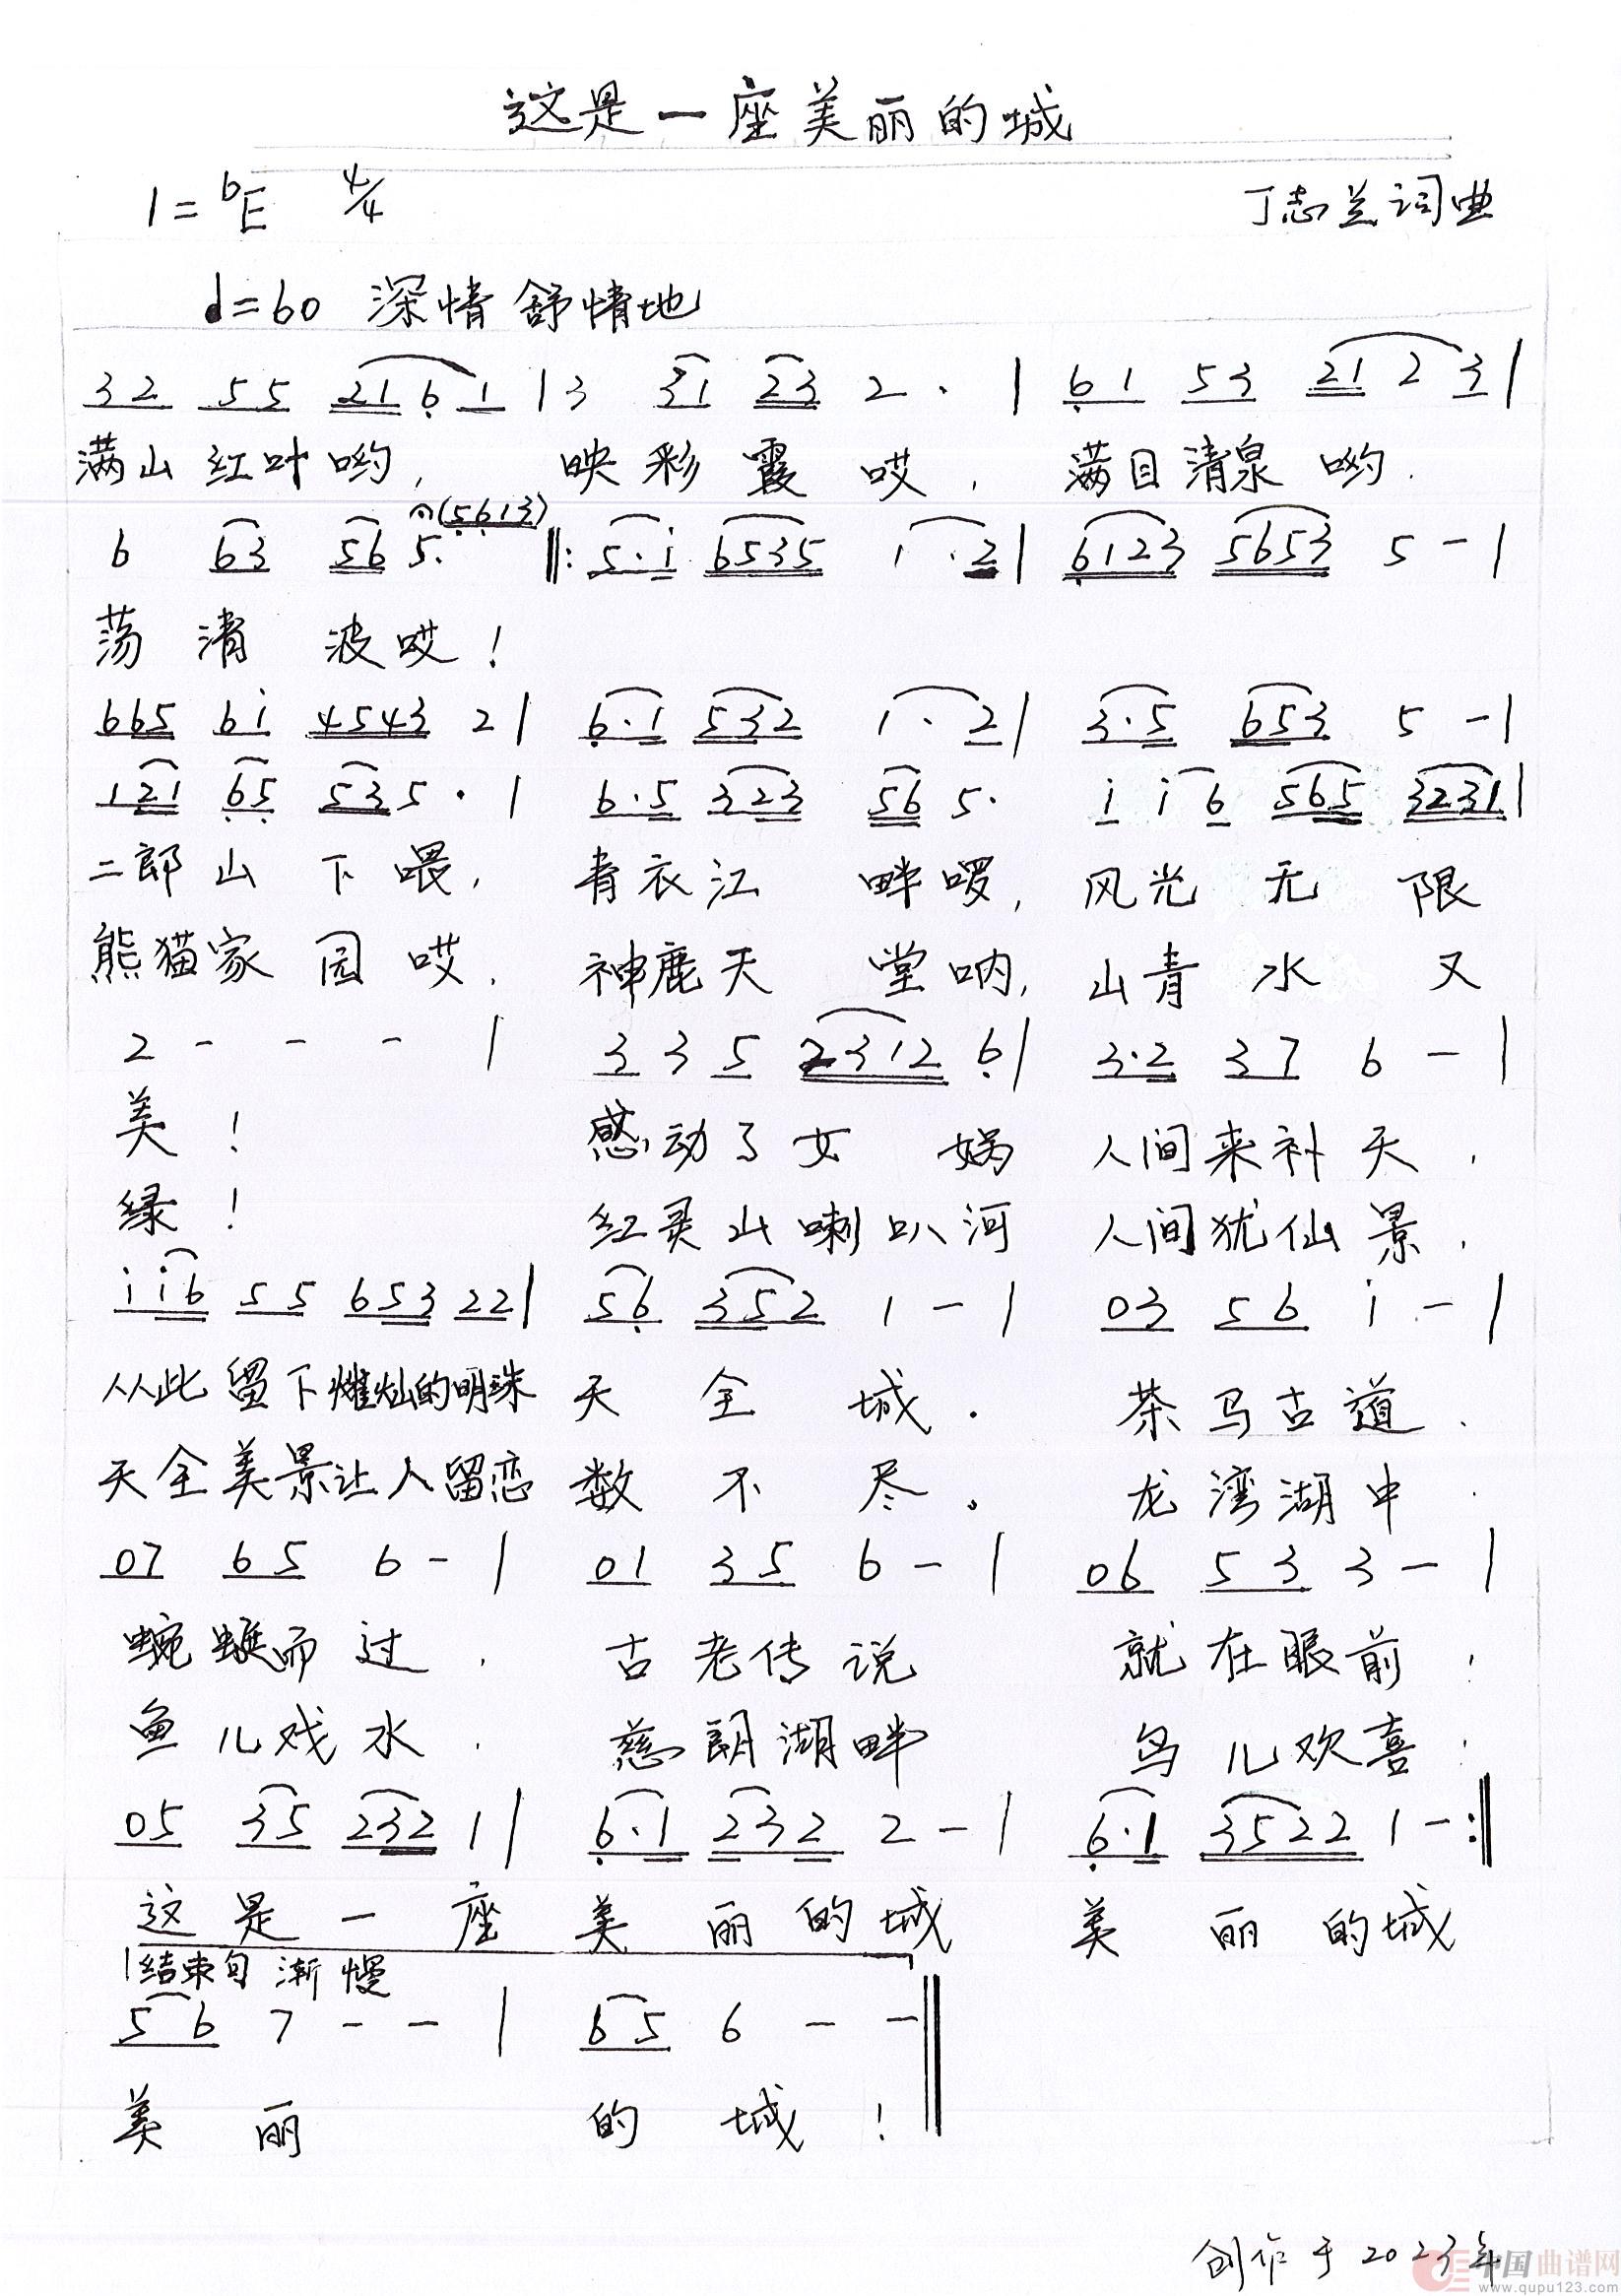 这是一座美丽的城
1=bE 4/4 丁志兰词曲
♩=60 深情舒情地
32 55 2161 | 3 31 23 2 · | 61 53 21 2 3 |
满山红叶哟, 映彩霞哎, 满目清泉哟.
6 63 56 5. (5613) ‖: 5·i 6535 1·2 | 6123 5653 5 - |
荡清波哎!
665 6i 4543 2 | 6·1 532 1·2 | 3·5 653 5 - |
121 65 535 · | 6·5 323 56 5· i i6 565 3231 |
二郎山下喂, 青衣江畔啰, 风光无限
熊猫家园哎. 神鹿天堂呐, 山青水又
2 - - - | 3 3 5 2312 6 | 3·2 37 6 - |
美! 感动了女娲 人间来补天,
绿! 红灵山喇叭河 人间犹仙景,
i i6 55 653 22 | 56 352 1 - | 03 56 i - |
从此留下璀灿的明珠 天全城. 茶马古道.
天全美景让人留恋 数不尽。 龙湾湖中.
07 65 6 - | 01 35 6 - | 06 53 3 - |
蜿蜒而过, 古老传说 就在眼前,
鱼儿戏水. 慈朗湖畔 鸟儿欢喜.
05 35 232 1 | 6·1 232 2 - | 6·1 3522 1 - :‖
这是一座 美丽的城 美丽的城
结束句 渐慢
56 7 - - | 65 6 - - ‖
美丽 的城!
创作于2023年
中国曲谱网
www.qupu123.com